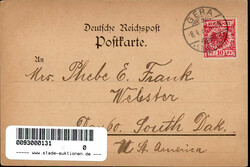 Deutsche Reichspost
Postkarte.
GERA
An
Mrs. Phebe E. Frank
Webster
Day Co. South Dak.
N. America
0093000131
0
www.slade-auktionen.de